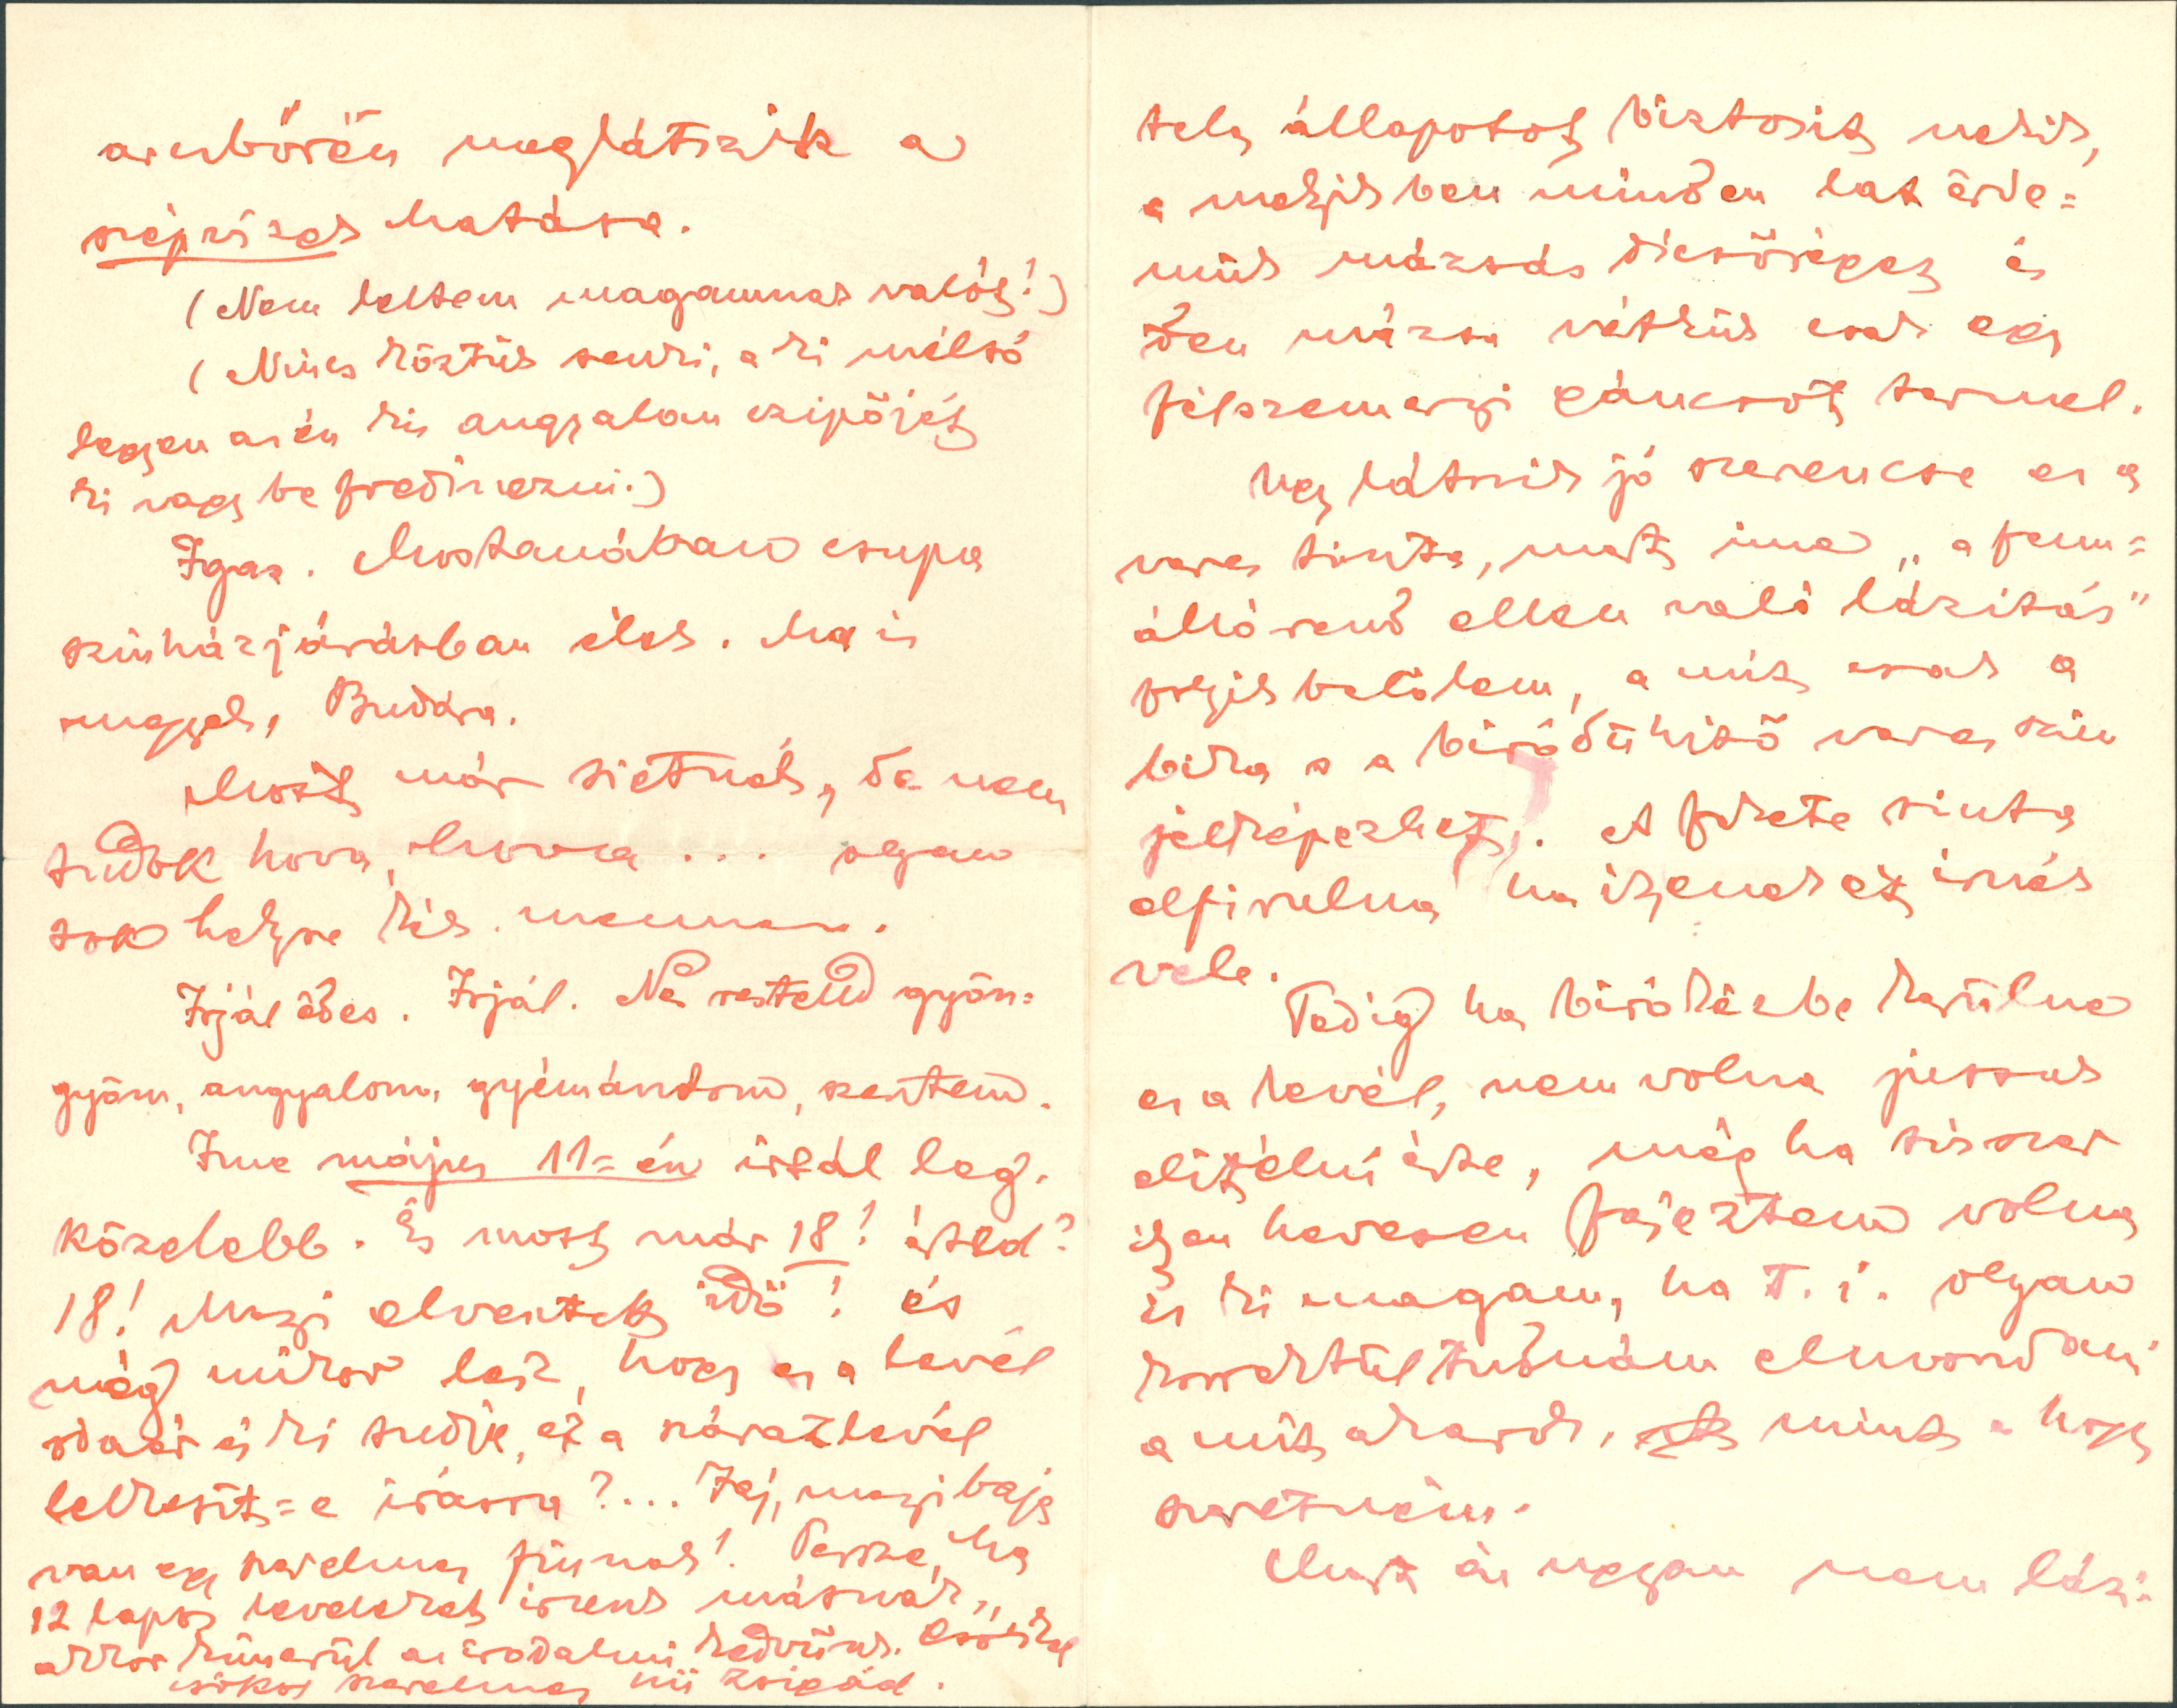 arcbőrön meglátszik a
szépvizek hatása.
(Nem leltem magamnak valót!)
(Nincs köztük senki, a ki méltó
legyen az én kis angyalom czipőjét
ki vagy be fredliezni.)
Igaz. Mostanában csupa
szinházjárásban élek. Ma is
megyek, Budára.
Most már sietnék, de nem
tudok hova, hova... olyan
sok helyre kék mennem.
Irjál édes. Irjál. Ne restelld gyön=
gyöm, angyalom, gyémántom, szentem.
Ime május 11=én irtál leg.
közelebb. És most már 18! érted?
18! Mnyi elvesztett idő! és
még mikor lesz, hogy ez a levél
odaér és ki tudja, ez a száraz levél
lelkesít=e irásra?... Jaj, mnyi baja
van egy szerelmes fiúnak! Persze, ha
12 lapos leveleket irunk másnak,
akkor kimerül az irodalmi kedvünk. Csókol
csókos szerelmes hű Zsigád.
tele állapotot biztosit nekik,
a melyikben minden lat érde=
mük mázsás dicsőséget és
den mázsa vétkük csak egy
félszemernyi gáncsot termel.
Ugy látszik jó szerencse ez a
veres tinta, mert ime "a fenn=
álló rend ellen való lázitás"
folyik belőlem, a mit csak a
bika s a biródühitő veres szin
jelképezhet. A fekete tinta
elpirulna ha ilyeneket irnék
vele.
Pedig ha biró kézbe kerülne
ez a levél, nem volna jussuk
elitélni érte, még ha tizszer
ilyen hevesen fejeztem volna
is ki magam, ha t. i. olyan
remekül tudnám elmondani
a mit akarok, mint a hogy
szeretném.
Mert én ugyan nem lázi=